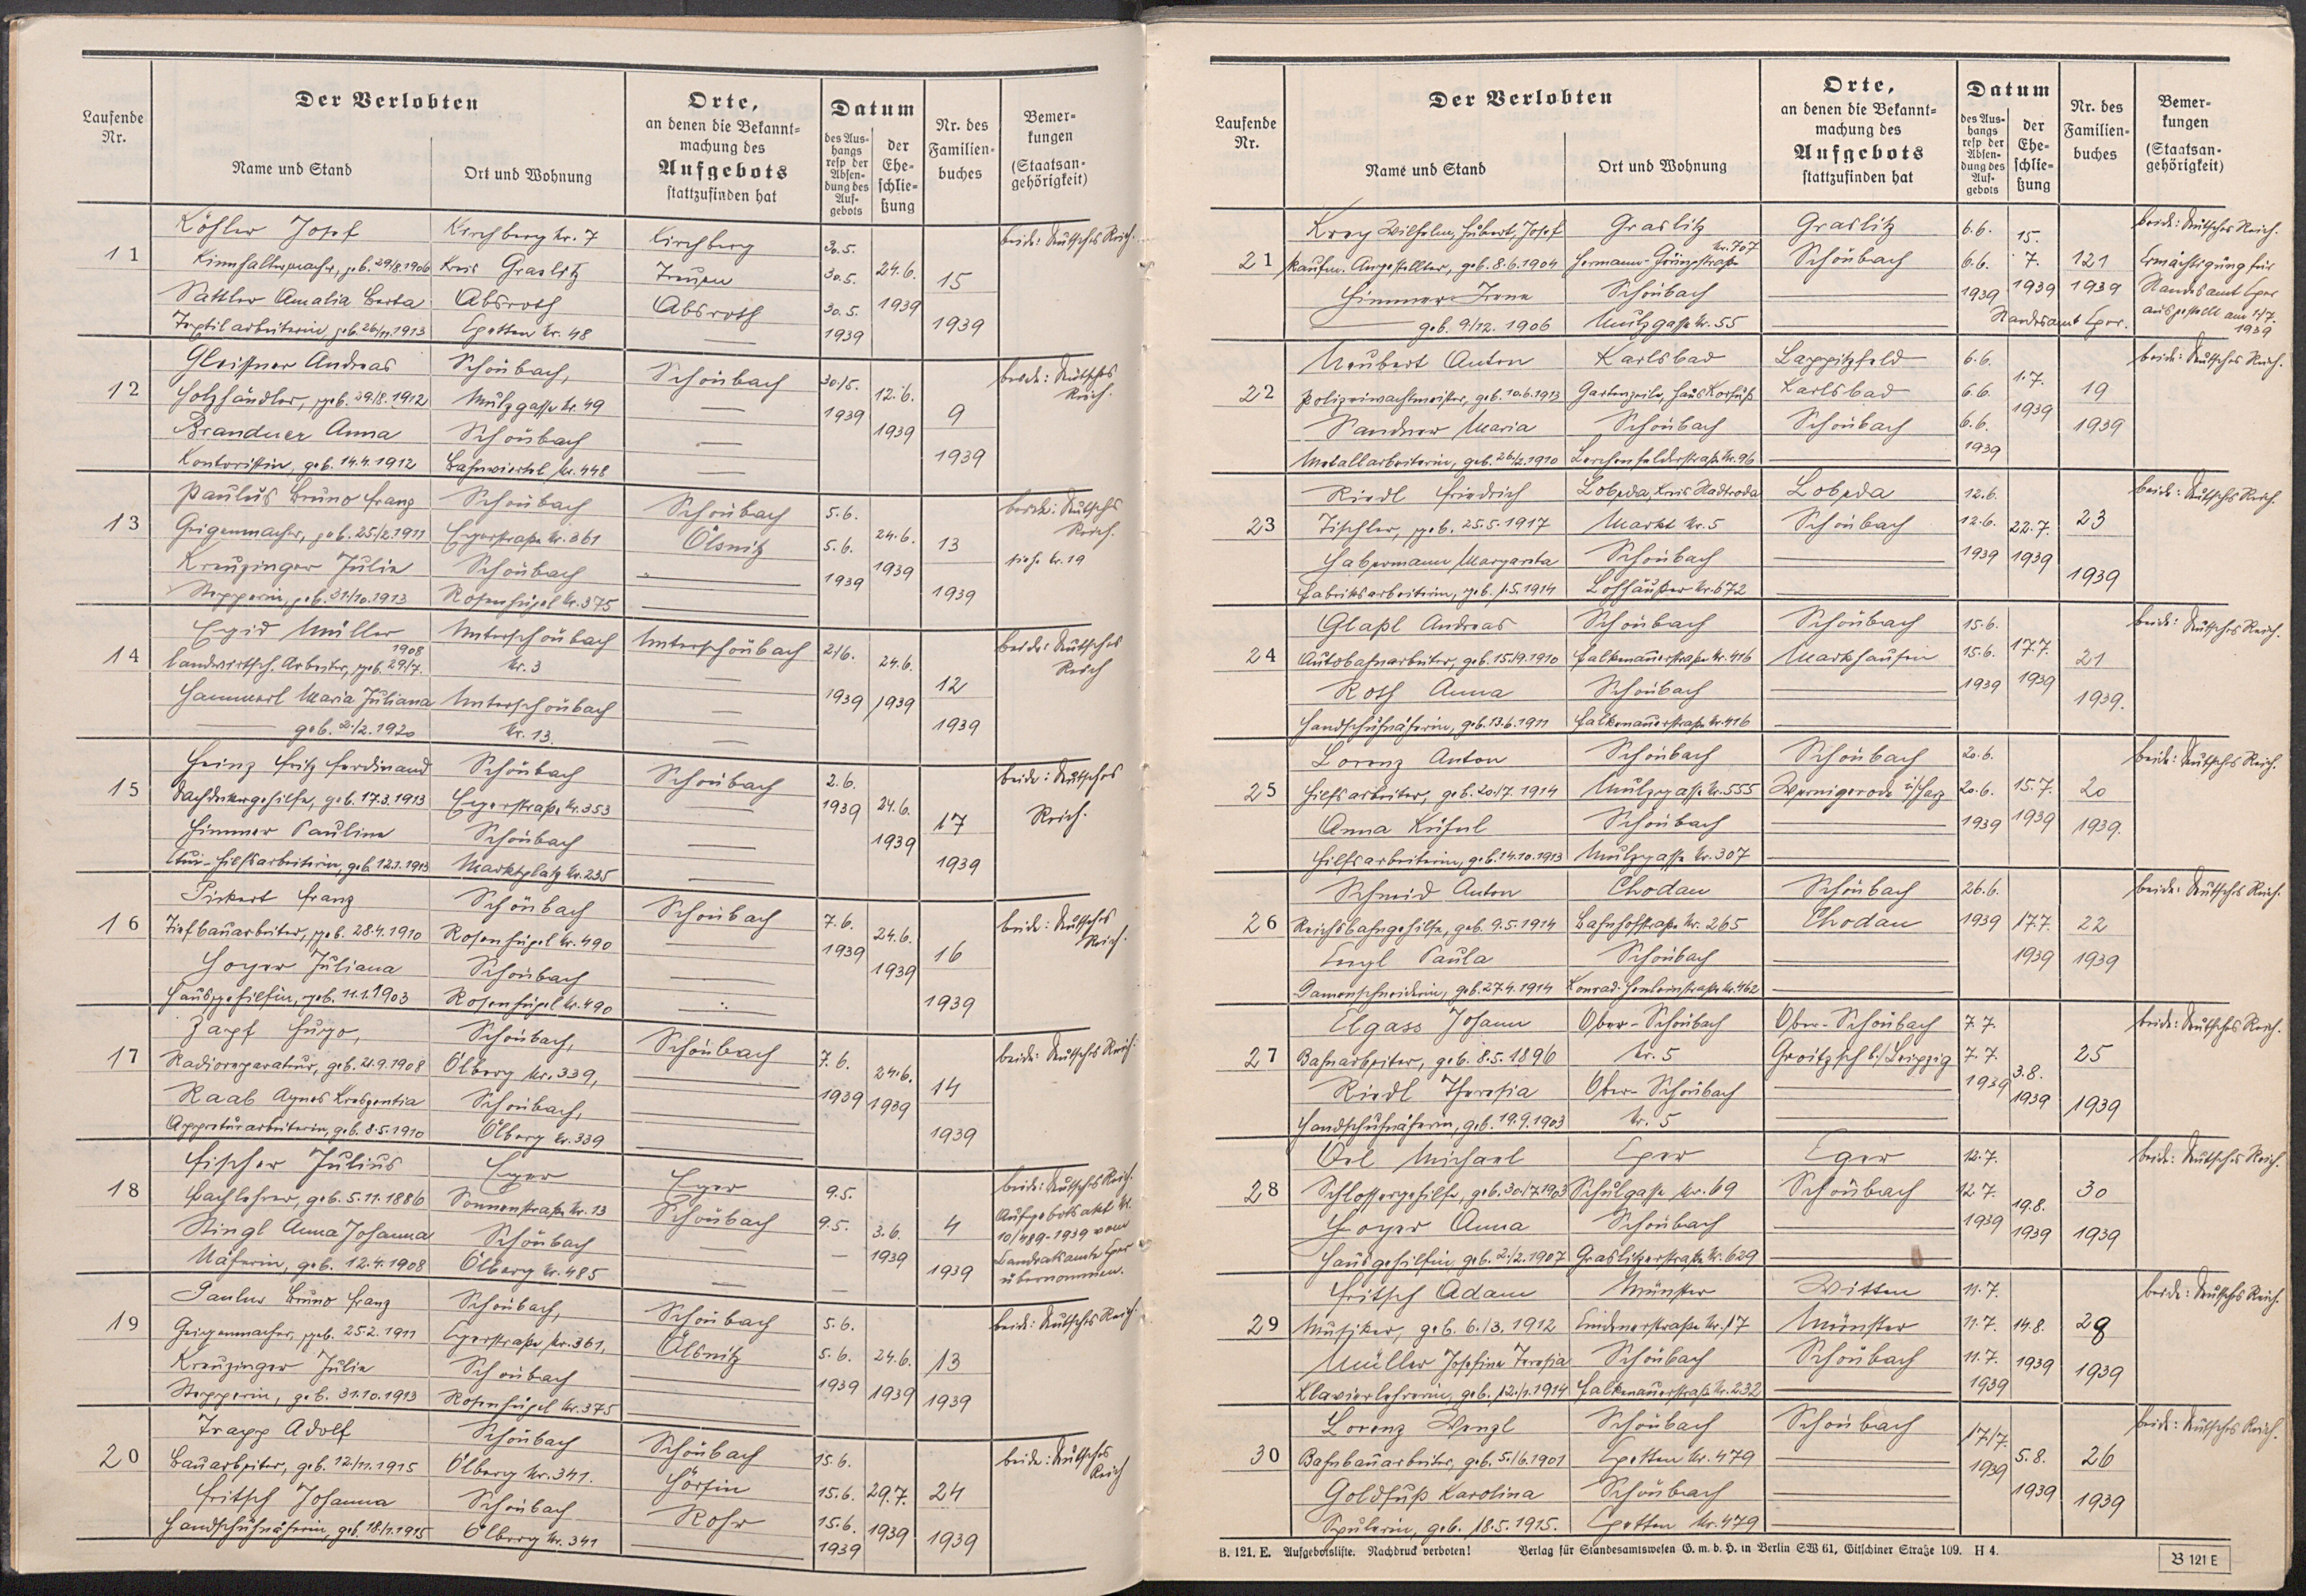 Laufende Nr.
Der Verlobten
Name und Stand
Ort und Wohnung
Orte, an denen die Bekanntmachung des Aufgebots stattzufinden hat
Datum
des Aushangs resp der Absendung des Aufgebots
der Eheschließung
Nr. des Familienbuches
Bemerkungen (Staatsangehörigkeit)
11
Köhler Josef Kirchberg Nr. 7 Kirchberg 30.5. beide: Deutsches Reich.
Kinnhaltermacher, geb. 29/8.1906 Kreis Graslitz 30.5. 24.6. 15
Sattler Amalia Berta Absroth Absroth 30.5. 1939
Textilarbeiterin geb. 26/11.1913 Nr. 48 1939 1939
12
Gleißner Andreas Schönbach, Schönbach 30/5. 12.6. beide: Deutsches Reich.
Holzhändler, geb. 29/8.1912 Mühlgasse Nr. 49 1939 1939 9
Brandner Anna Schönbach
Kontoristin, geb. 14.4.1912 Bahnviertel Nr. 448 1939
13
Paulus Bruno Franz Schönbach Schönbach 5.6. beide: Deutsches Reich.
Geigenmacher, geb. 25/2.1911 Egerstraße Nr. 361 Ölsnitz 5.6. 24.6. 13
Kreuzinger Julie Schönbach 1939 1939 siehe Nr. 19
Stepperin, geb. 31/10.1913 Rosenhügel Nr. 375 1939
14
Egid Müller Unterschönbach Unterschönbach 2/6. 24.6. beide: Deutsches Reich
1908
landwirtsch. Arbeiter, geb. 29/7. Nr. 3 12
Hammerl Maria Juliana Unterschönbach 1939 1939
geb. 2./2.1920 Nr. 13. 1939
15
Heinz Fritz Ferdinand Schönbach Schönbach 2.6. beide: Deutsches Reich.
Dachdeckergehilfe, geb. 17.3.1913 Egerstraße Nr. 353 1939 24.6. 17
Himmer Pauline Schönbach 1939
Etui-Hilfsarbeiterin, geb. 12.1.1913 Marktplatz Nr. 235 1939
16
Pickert Franz Schönbach Schönbach 7.6. beide: Deutsches Reich.
Tiefbauarbeiter, geb. 28.4.1910 Rosenhügel Nr. 490 1939 24.6. 16
Hoyer Juliana Schönbach 1939
Hausgehilfin, geb. 11.1.1903 Rosenhügel Nr. 490 1939
17
Zapf Hugo, Schönbach, Schönbach 7.6. beide: Deutsches Reich.
Radioreparateur, geb. 21.9.1908 Ölberg Nr. 339, 24.6. 14
Raab Agnes Kreszentia Schönbach, 1939 1939
Appreturarbeiterin, geb. 8.5.1910 Ölberg Nr. 339 1939
18
Fischer Julius Eger Eger 9.5. beide: Deutsches Reich.
Fachlehrer, geb. 5.11.1886 Sonnenstraße Nr. 13 Schönbach 9.5. 3.6. 4 Aufgebotsakt Nr.
Stingl Anna Johanna Schönbach 1939 10/489-1939 vom
Näherin, geb. 12.4.1908 Ölberg Nr. 485 1939 Landratsamte Eger
übernommen.
19
Paulus Bruno Franz Schönbach, Schönbach 5.6. beide: Deutsches Reich.
Geigenmacher, geb. 25.2.1911 Egerstraße Nr. 361, Ölsnitz 5.6. 24.6. 13
Kreuzinger Julie Schönbach 1939 1939 1939
Stepperin, geb. 31.10.1913 Rosenhügel Nr. 375
20
Trapp Adolf Schönbach Schönbach 15.6. beide: Deutsches Reich
Bauarbeiter, geb. 12/11.1915 Ölberg Nr. 341. Hörsin 15.6. 29.7. 24
Fritsch Johanna Schönbach Rohr 15.6. 1939
Handschuhnäherin, geb. 18/1.1915 Ölberg Nr. 341 1939 1939
Laufende Nr.
Der Verlobten
Name und Stand
Ort und Wohnung
Orte, an denen die Bekanntmachung des Aufgebots stattzufinden hat
Datum
des Aushangs resp der Absendung des Aufgebots
der Eheschließung
Nr. des Familienbuches
Bemerkungen (Staatsangehörigkeit)
21
Wilhelm, Hubert, Josef Graslitz Graslitz 6.6. 15. beide: Deutsches Reich.
kaufm. Angestellter, geb. 8.6.1904 Hermann-Göringstraße Nr. 707 Schönbach 6.6. 7. 121 Ermächtigung für
Himmer Irene Schönbach 1939 1939 1939 Standesamt Eger
geb. 9/12. 1906 Mühlgasse Nr. 55 Standesamt Eger. ausgestellt am 1/7.
1939
22
Neubert Anton Karlsbad Lappitzfeld 6.6. 1.7. beide: Deutsches Reich.
Polizeiwachtmeister, geb. 10.6.1913 Gartenzeile, Haus Karlsbad 6.6. 1939 19
Sandner Maria Schönbach Schönbach 6.6. 1939
Metallarbeiterin, geb. 26/2.1910 Lerchenfelderstraße Nr. 96 1939
23
Riedl Friedrich Lobeda, Kreis Stadtroda Lobeda 12.6. beide: Deutsches Reich.
Tischler, geb. 25.5.1917 Markt Nr. 5 Schönbach 12.6. 22.7. 23
Habermann Margareta Schönbach 1939 1939
Fabriksarbeiterin, geb. 1.5.1914 Lohhäuser Nr. 672 1939
24
Glaßl Andreas Schönbach Schönbach 15.6. beide: Deutsches Reich.
Autobahnarbeiter, geb. 15./9.1910 Falkenauerstraße Nr. 416 Markhausen 15.6. 17.7. 21
Roth Anna Schönbach 1939 1939 1939.
Handschuhnäherin, geb. 13.6.1911 Falkenauerstraße Nr. 416
25
Lorenz Anton Schönbach Schönbach 20.6. beide: Deutsches Reich.
Hilfsarbeiter, geb. 20./7. 1914 Mühlgasse Nr. 555 Wernigerode i/Harz 20.6. 15.7. 20
Anna Kühnl Schönbach 1939 1939 1939.
Hilfsarbeiterin, geb. 14.10.1913 Mühlgasse Nr. 307
26
Schmid Anton Chodau Schönbach 26.6. beide: Deutsches Reich.
Reichsbahngehilfe, geb. 9.5.1914 Bahnhofstraße Nr. 265 Chodau 1939 17.7. 22
Paula Schönbach 1939 1939
Damenschneiderin, geb. 27.4.1914 Konrad-Henleinstraße Nr. 462
27
Elgass Johann Ober-Schönbach Ober-Schönbach 7.7. beide: Deutsches Reich.
Bahnarbeiter, geb. 8.5.1896 Nr. 5 Groitzsch b./Leipzig 7.7. 3.8. 25
Riedl Theresia Ober-Schönbach 1939 1939 1939
Handschuhnäherin, geb. 19.9.1903 Nr. 5
28
Michael Eger Eger 12.7. beide: Deutsches Reich.
Schlossergehilfe, geb. 30./7.1903 Schulgasse Nr. 69 Schönbach 12.7. 19.8. 30
Hoyer Anna Schönbach 1939 1939 1939
Hausgehilfin, geb. 2./2.1907 Graslitzerstraße Nr. 629
29
Fritsch Adam Münster Witten 11.7. beide: Deutsches Reich.
Musiker, geb. 6./3. 1912 Lindenerstraße Nr. 17 Münster 11.7. 14.8. 28
Müller Josefine Teresia Schönbach Schönbach 11.7. 1939 1939
Klavierlehrerin, geb. 12./1.1914 Falkenauerstraße Nr. 232 1939
30
Lorenz Wenzl Schönbach Schönbach 17/7. beide: Deutsches Reich.
Bahnbauarbeiter, geb. 5./6.1901 Nr. 479 1939 5.8. 26
Goldfuß Karolina Schönbach 1939 1939
Spulerin, geb. 18.5.1915. Nr. 479
B. 121. E. Aufgebotsliste. Nachdruck verboten! Verlag für Standesamtswesen G. m. b. H. in Berlin SW 61, Gitschiner Straße 109. H 4.
B 121 E